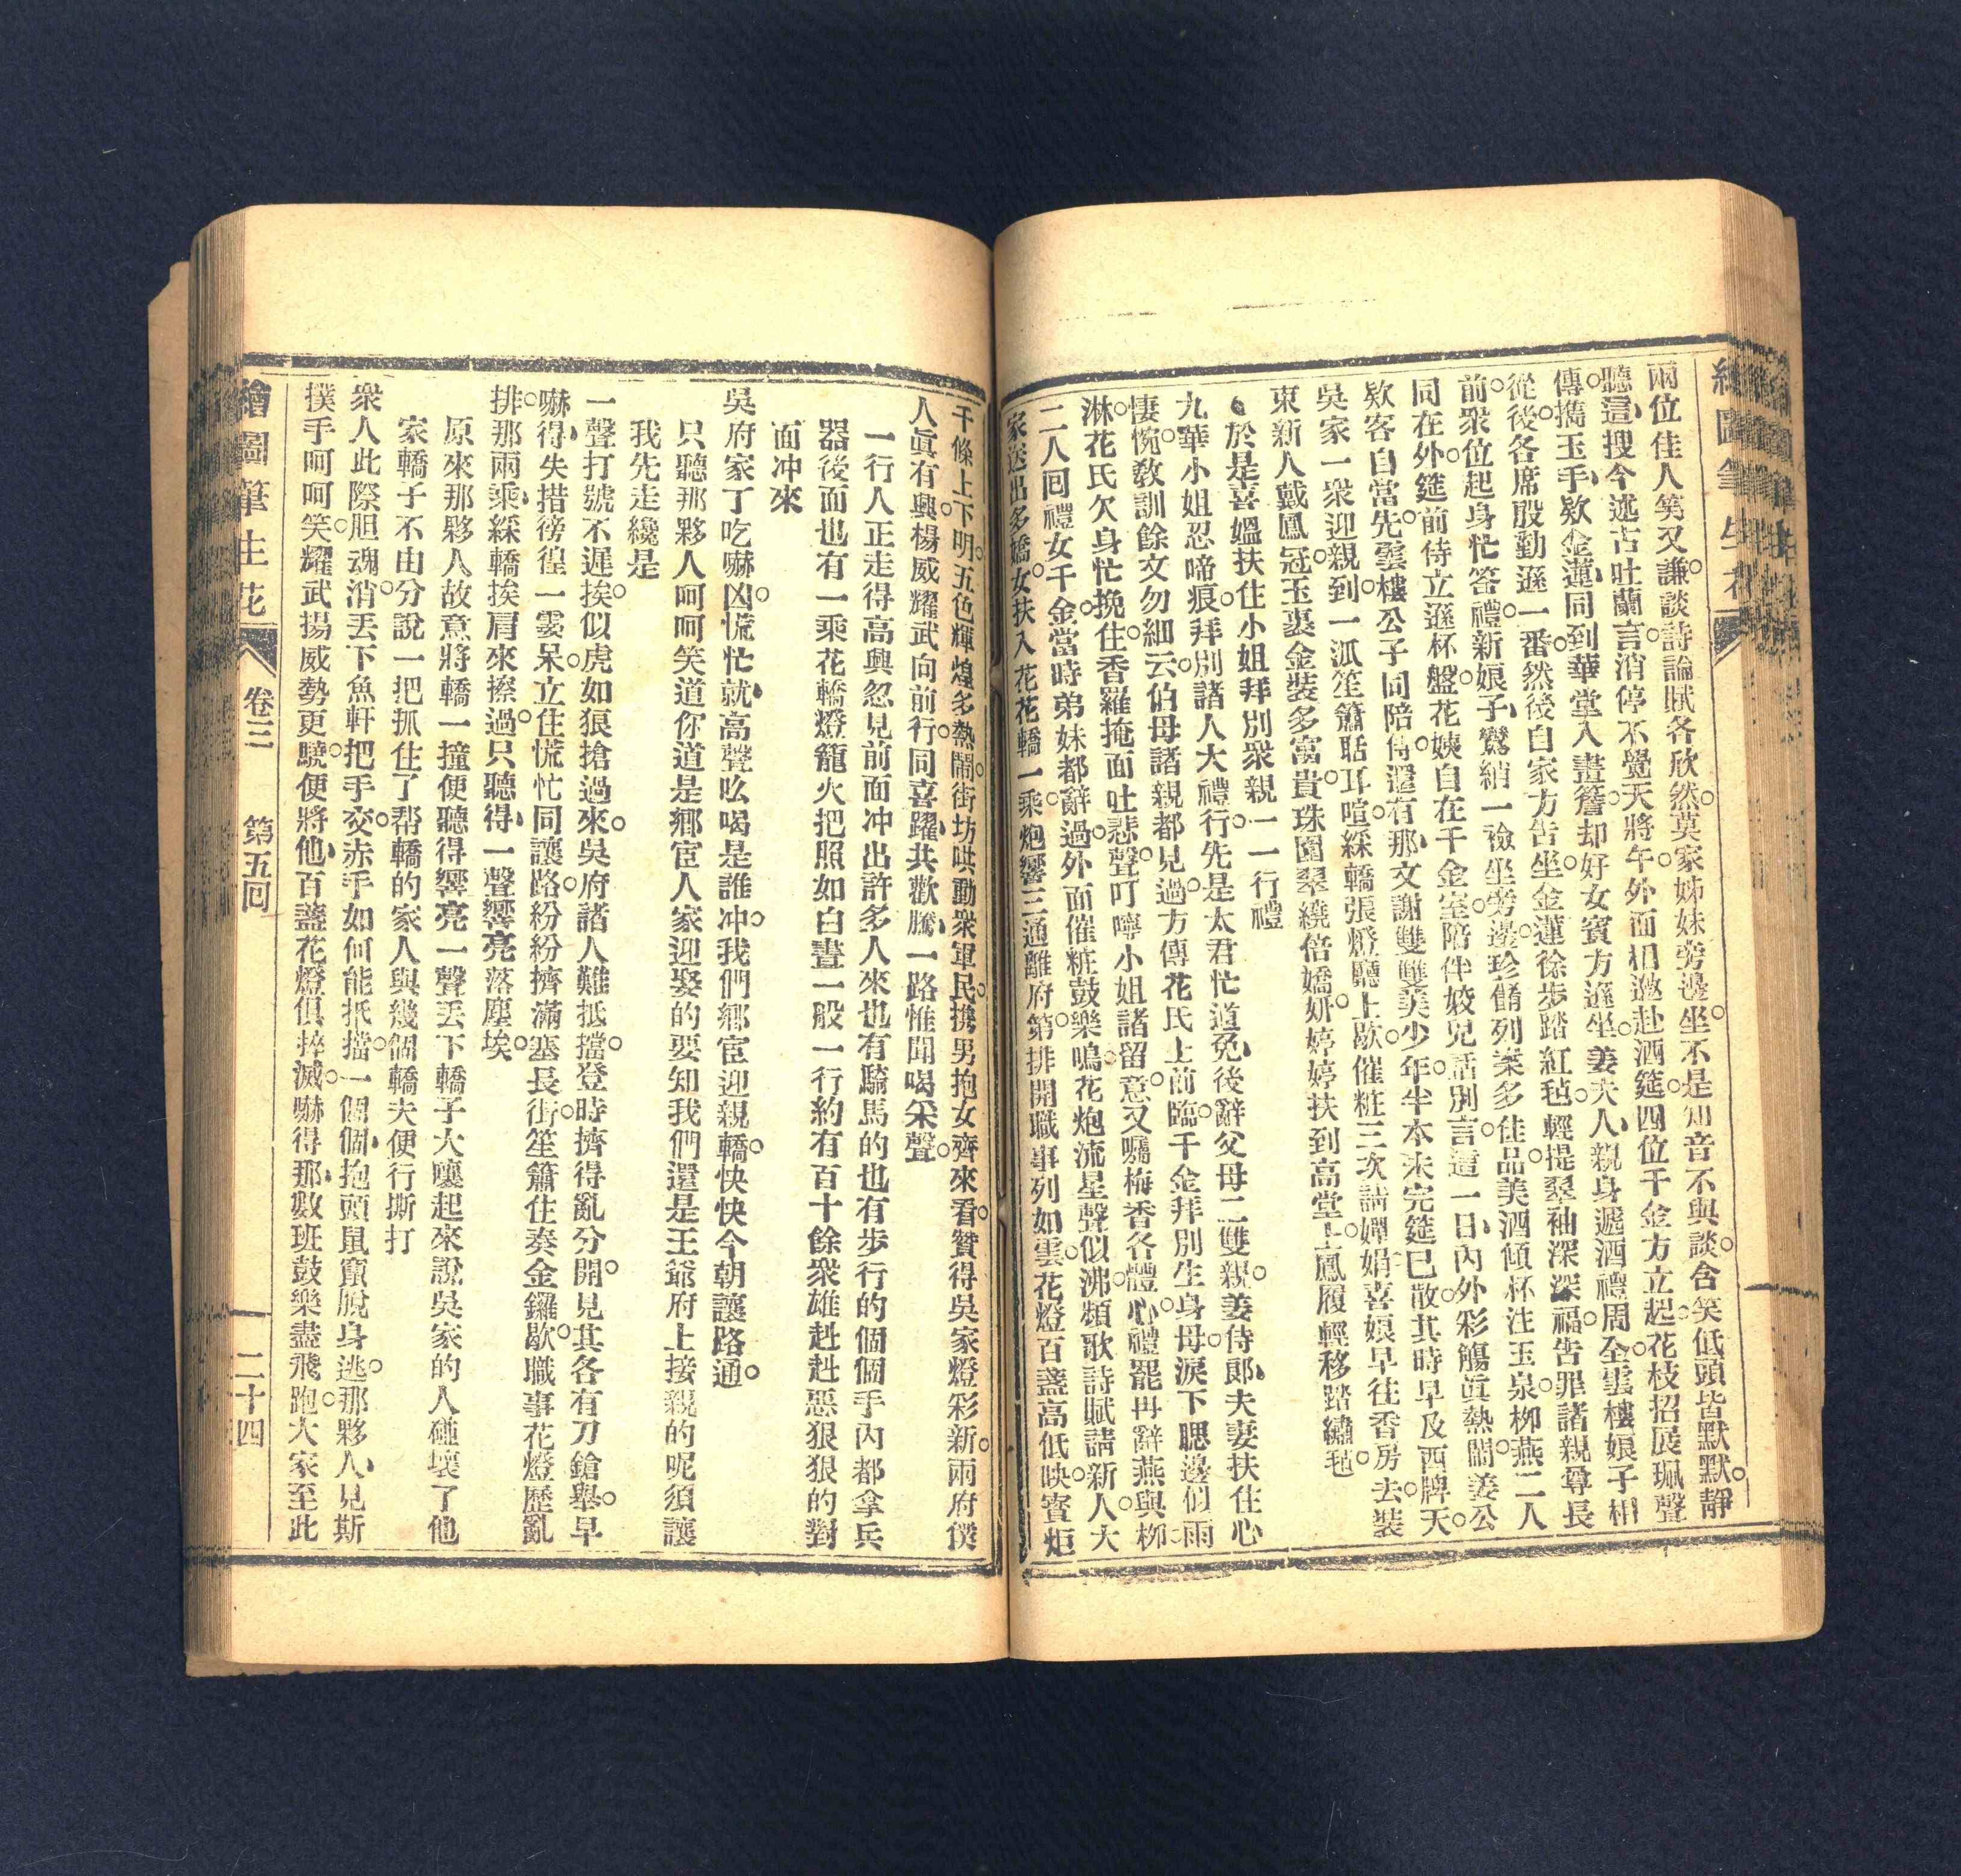 兩位佳人笑又謙。談詩論賦各欣然。莫家姊妹旁邊坐。不是知音不與談。含笑低頭皆默默。靜
聽這、搜今述古吐蘭言。消停不覺天將午。外面相邀赴酒筵。四位千金方立起。花枝招展珮聲
傳。攜玉手、欵金蓮。同到華堂入畫簷。却好女賓方遜坐。姜夫人、親身遞酒禮周全。雲樓娘子相
從後。各席殷勤遜一番。然後自家方告坐。金蓮徐步踏紅毡。輕提翠袖深深福。告罪諸親尊長
前。衆位起身忙答禮。新娘子、鸞綃一襝坐旁邊。珍饈列案多佳品。美酒傾杯注玉泉。柳燕二人
同在外。筵前侍立遜杯盤。花姨自在千金室。陪伴姣兒話別言。這一日、內外彩觴眞熱鬧。姜公
欵客自當先。雲樓公子同陪侍。還有那、文謝雙雙美少年。半本未完筵已散。其時早及酉牌天。
吳家一衆迎親到。一派笙簫聒耳喧。綵轎張燈廳上歇。催粧三次請嬋娟。喜娘早往香房去。裝
束新人戴鳳冠。玉裹金裝多富貴。珠圍翠繞倍嬌妍。婷婷扶到高堂上。鳳履輕移踏繡毡。
於是喜媼扶住小姐拜別衆親一一行禮
九華小姐忍啼痕。拜別諸人大禮行。先是太君忙道免、後辭父母二雙親。姜侍郎、夫妻扶住心
悽惋。敎訓餘文勿細云。伯母諸親都見過。方傳花氏上前臨。千金拜別生身母。淚下腮邊似雨
淋。花氏欠身忙挽住。香羅掩面吐悲聲。叮嚀小姐諸留意。又囑梅香各體心。禮罷再辭燕與柳。
二人回禮女千金。當時弟妹都辭過。外面催粧鼓樂鳴。花炮流星聲似沸。頻歌詩賦請新人。大
家送出多嬌女。扶入花花轎一乘。炮響三通離府第。排開職事列如雲。花燈百盞高低映。寳炬
千條上下明。五色輝煌多熱鬧。街坊哄動衆軍民。携男抱女齊來看。贊得吳家燈彩新。兩府僕
人眞有興。楊威耀武向前行。同喜躍、共歡騰。一路惟聞喝采聲。
一行人正走得高興忽見前面冲出許多人來也有騎馬的也有步行的個個手內都拿兵
器後面也有一乘花轎燈籠火把照如白晝一般一行約有百十餘衆雄赳赳惡狠狠的對
面冲來
吳府家丁吃嚇凶。慌忙就、高聲吆喝是誰冲。我們鄉宦迎親轎。快快今朝讓路通。
只聽那夥人呵呵笑道你道是鄉宦人家迎娶的要知我們還是王爺府上接親的呢須讓
我先走纔是
一聲打號不遲挨。似虎如狼搶過來。吳府諸人難抵擋。登時擠得亂分開。見其各有刀鎗舉。早
嚇得、失措徬徨一霎呆。立住慌忙同讓路。紛紛擠滿塞長街。笙簫住奏金鑼歇。職事花燈歷亂
排。那兩乘、綵轎挨肩來擦過。只聽得、一聲響亮落塵埃。
原來那夥人故意將轎一撞便聽得響亮一聲丟下轎子大嚷起來說吳家的人碰壞了他
家轎子不由分說一把抓住了幇轎的家人與幾個轎夫便行撕打
衆人此際胆魂消。丟下魚軒把手交。赤手如何能抵擋。一個個、抱頭鼠竄脫身逃。那夥人、見斯
撲手呵呵笑。耀武揚威勢更驍。便將他、百盞花燈俱摔滅。嚇得那、數班鼓樂盡飛跑。大家至此
繪圖筆生花
卷三　第五回
二十四